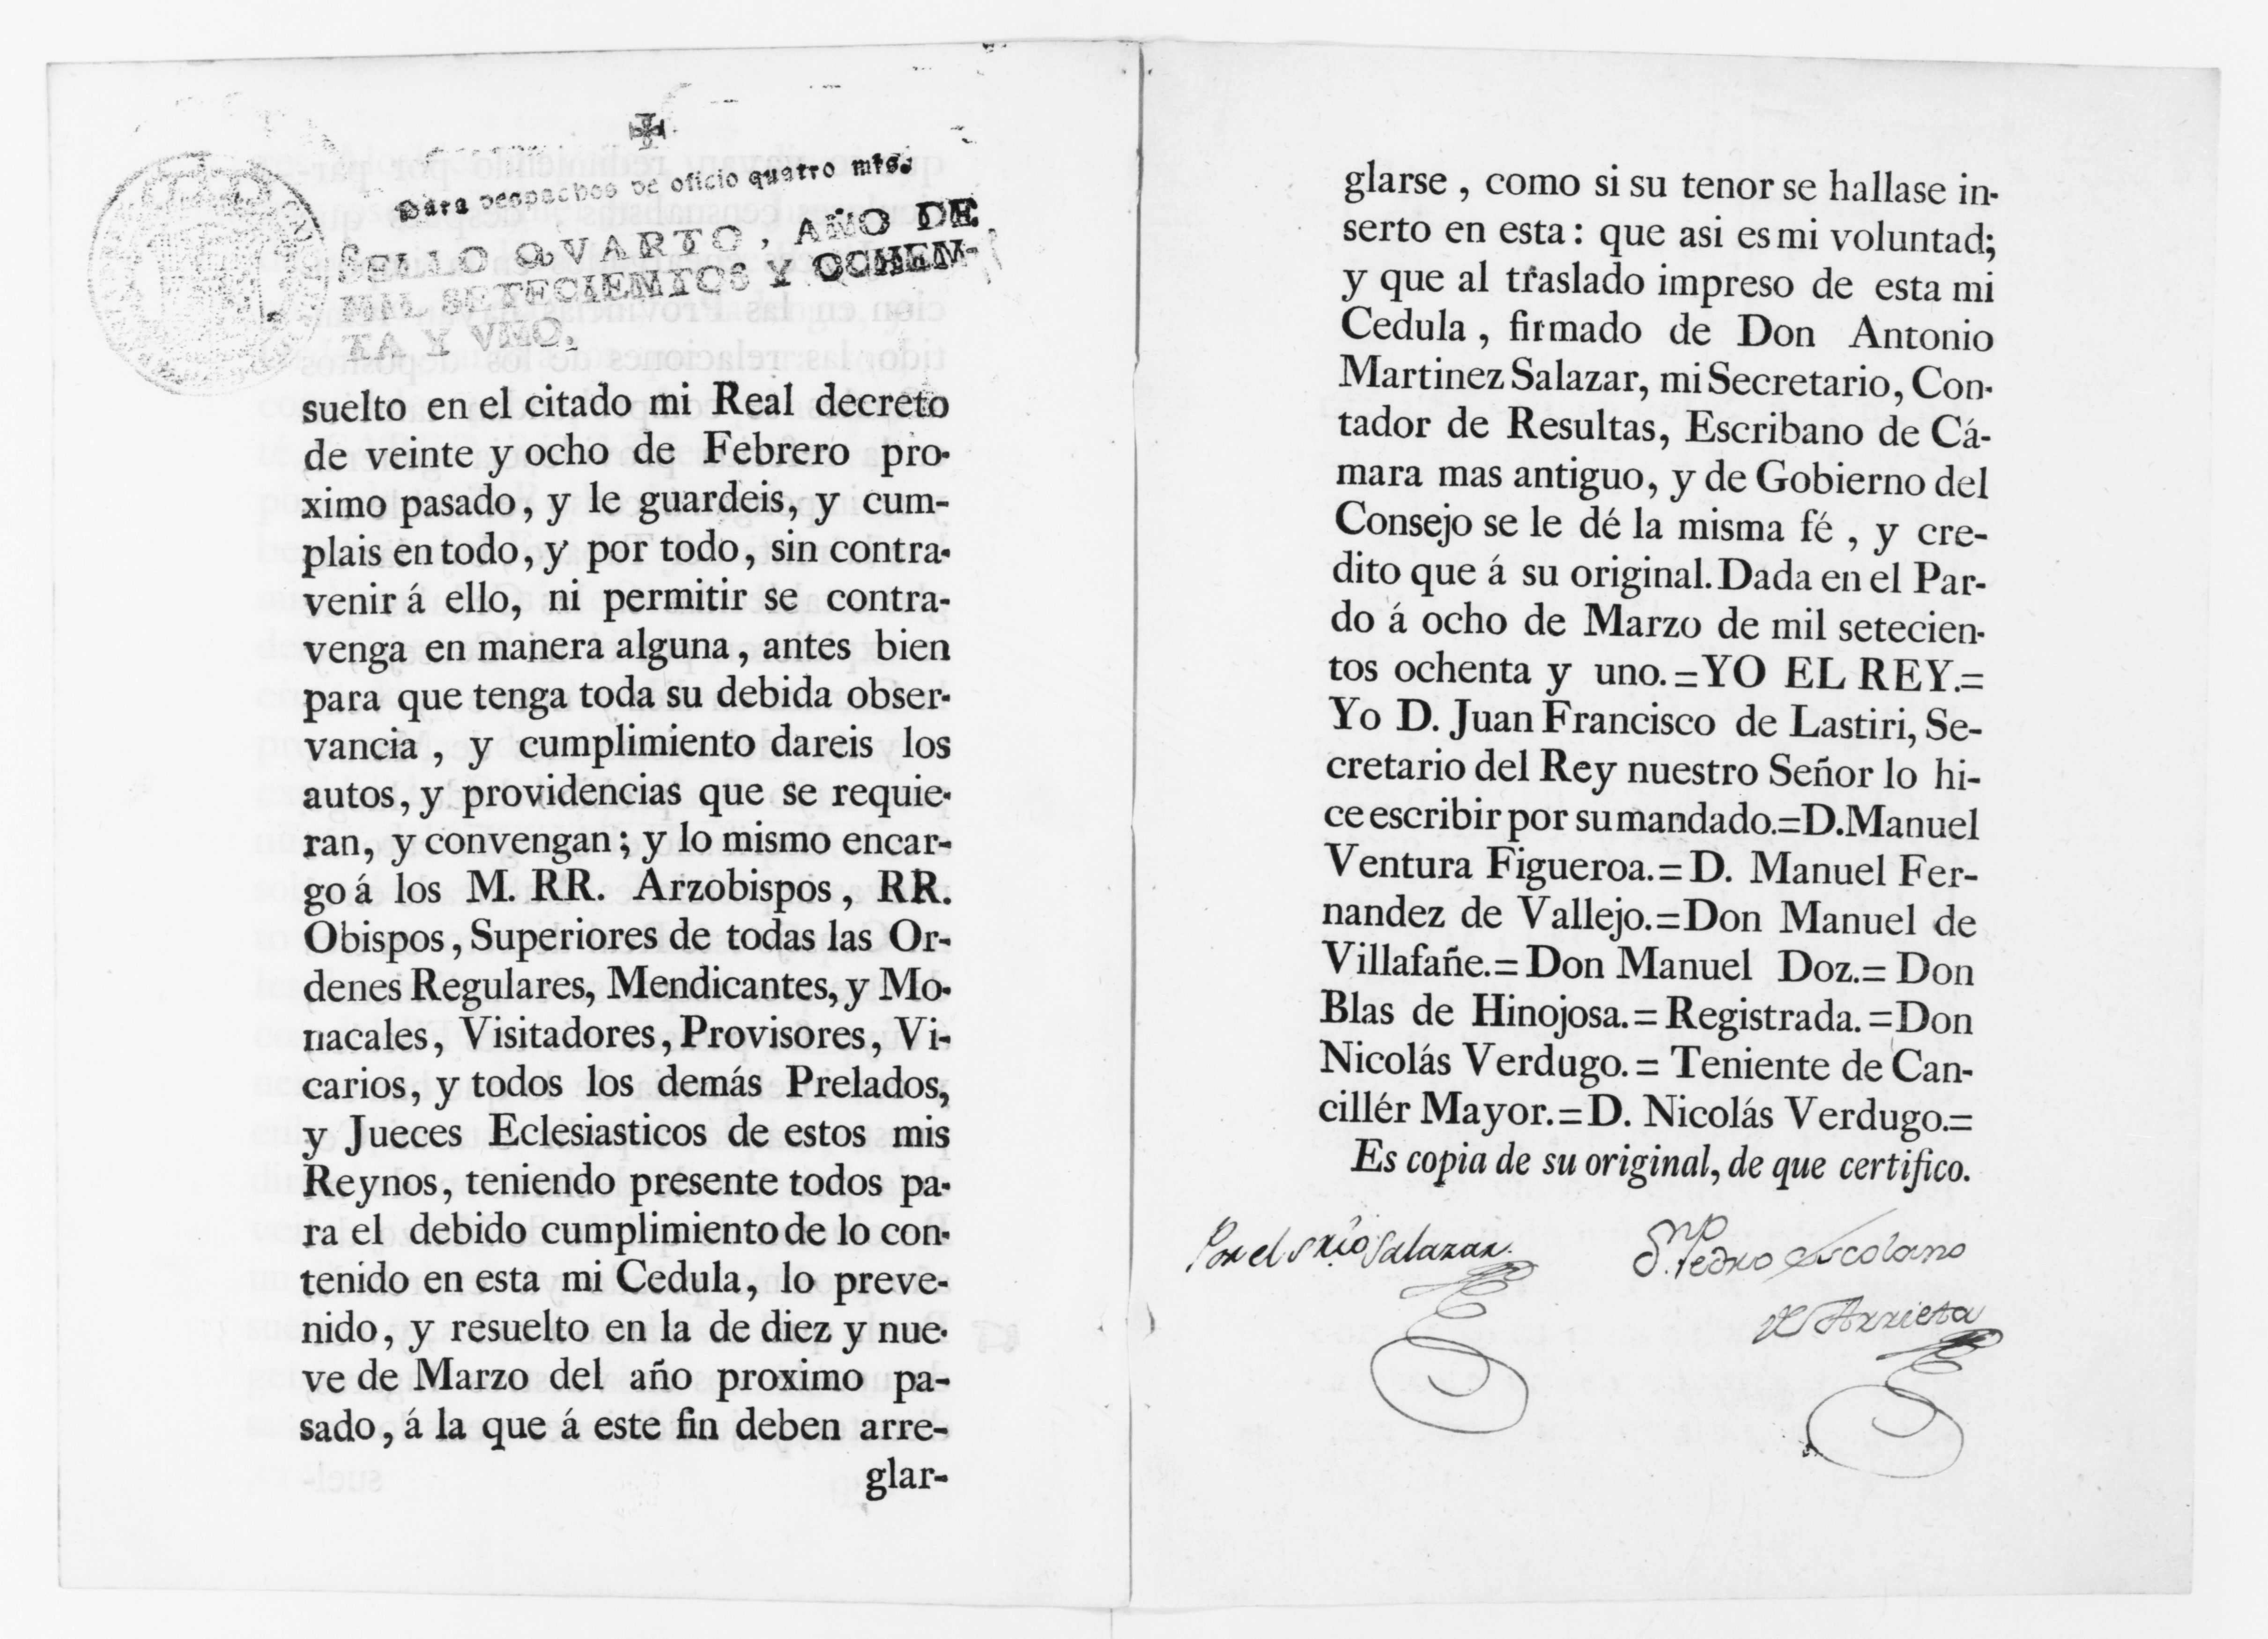 para despachos de oficio quatro mrs.
SELLO QVARTO, AÑO DE
MIL SETECIENTOS Y OCHEN-
TA Y VNO.
suelto en el citado mi Real decreto
de veinte y ocho de Febrero pro-
ximo pasado, y le guardeis, y cum-
plais en todo, y por todo, sin contra-
venir á ello, ni permitir se contra-
venga en manera alguna, antes bien
para que tenga toda su debida obser-
vancia, y cumplimiento dareis los
autos, y providencias que se requie-
ran, y convengan; y lo mismo encar-
go á los M. RR. Arzobispos, RR.
Obispos, Superiores de todas las Or-
denes Regulares, Mendicantes, y Mo-
nacales, Visitadores, Provisores, Vi-
carios, y todos los demás Prelados,
y Jueces Eclesiasticos de estos mis
Reynos, teniendo presente todos pa-
ra el debido cumplimiento de lo con-
tenido en esta mi Cedula, lo preve-
nido, y resuelto en la de diez y nue-
ve de Marzo del año proximo pa-
sado, á la que á este fin deben arre-
glar-
glarse, como si su tenor se hallase in-
serto en esta: que asi es mi voluntad;
y que al traslado impreso de esta mi
Cedula, firmado de Don Antonio
Martinez Salazar, mi Secretario, Con-
tador de Resultas, Escribano de Cá-
mara mas antiguo, y de Gobierno del
Consejo se le dé la misma fé, y cre-
dito que á su original. Dada en el Par-
do á ocho de Marzo de mil setecien-
tos ochenta y uno.=YO EL REY.=
Yo D. Juan Francisco de Lastiri, Se-
cretario del Rey nuestro Señor lo hi-
ce escribir por su mandado.=D. Manuel
Ventura Figueroa.=D. Manuel Fer-
nandez de Vallejo.=Don Manuel de
Villafañe.=Don Manuel Doz.=Don
Blas de Hinojosa.=Registrada.=Don
Nicolás Verdugo.=Teniente de Can-
cillér Mayor.=D. Nicolás Verdugo.=
Es copia de su original, de que certifico.
Por el srio Salazar.
Dn. Pedro Escolano
de Arrieta